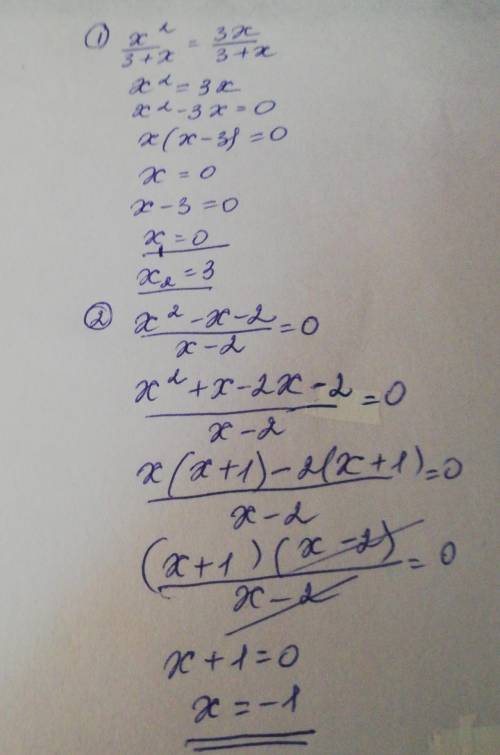 ① x²/(3+x) = 3x/(3+x)
x² = 3x
x² - 3x = 0
x(x-3) = 0
x = 0
x - 3 = 0
x₁ = 0
x₂ = 3
② (x² - x - 2)/(x - 2) = 0
(x² + x - 2x - 2)/(x - 2) = 0
(x(x+1) - 2(x+1))/(x - 2) = 0
((x+1)(x-2))/(x-2) = 0
x + 1 = 0
x = -1